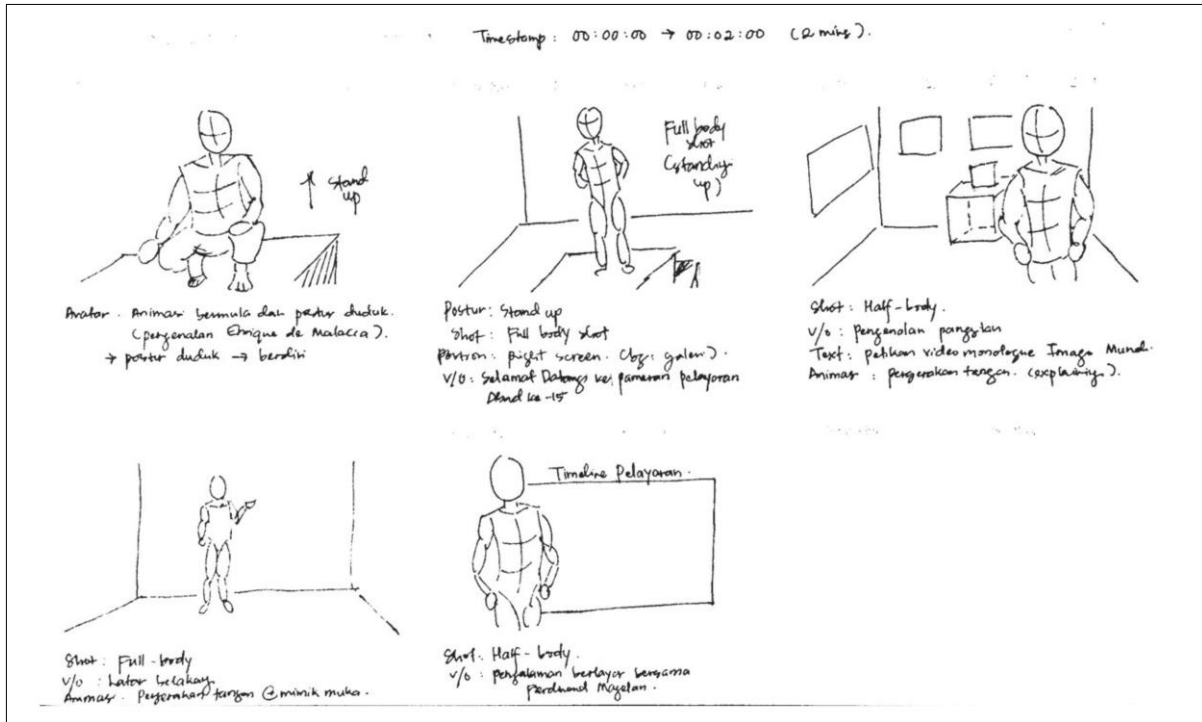 Timestamp : 00:00:00 → 00:02:00 (2 mins).
↑ Stand
up
Avatar. Animasi bermula dari postur duduk.
(pengenalan Enrique de Malacca).
→ postur duduk → berdiri
Full body
shot
(standing
up)
Postur: Stand up
Shot: Full body shot
right screen. (bg: galeri).
V/O: Selamat Datang ke pameran pelayaran
Abad ke-15
Shot: Half-body.
V/O: pengenalan
Text: petikan video monologue Imago Mundi.
Animasi: pergerakan tangan. (explaining).
Shot: Full-body
V/O: Latar belakang
Animasi. Pergerakan tangan @ mimik muka.
Timeline Pelayaran.
Shot: Half-body.
V/O: pengalaman berlayar bersama
Ferdinand Magelan.